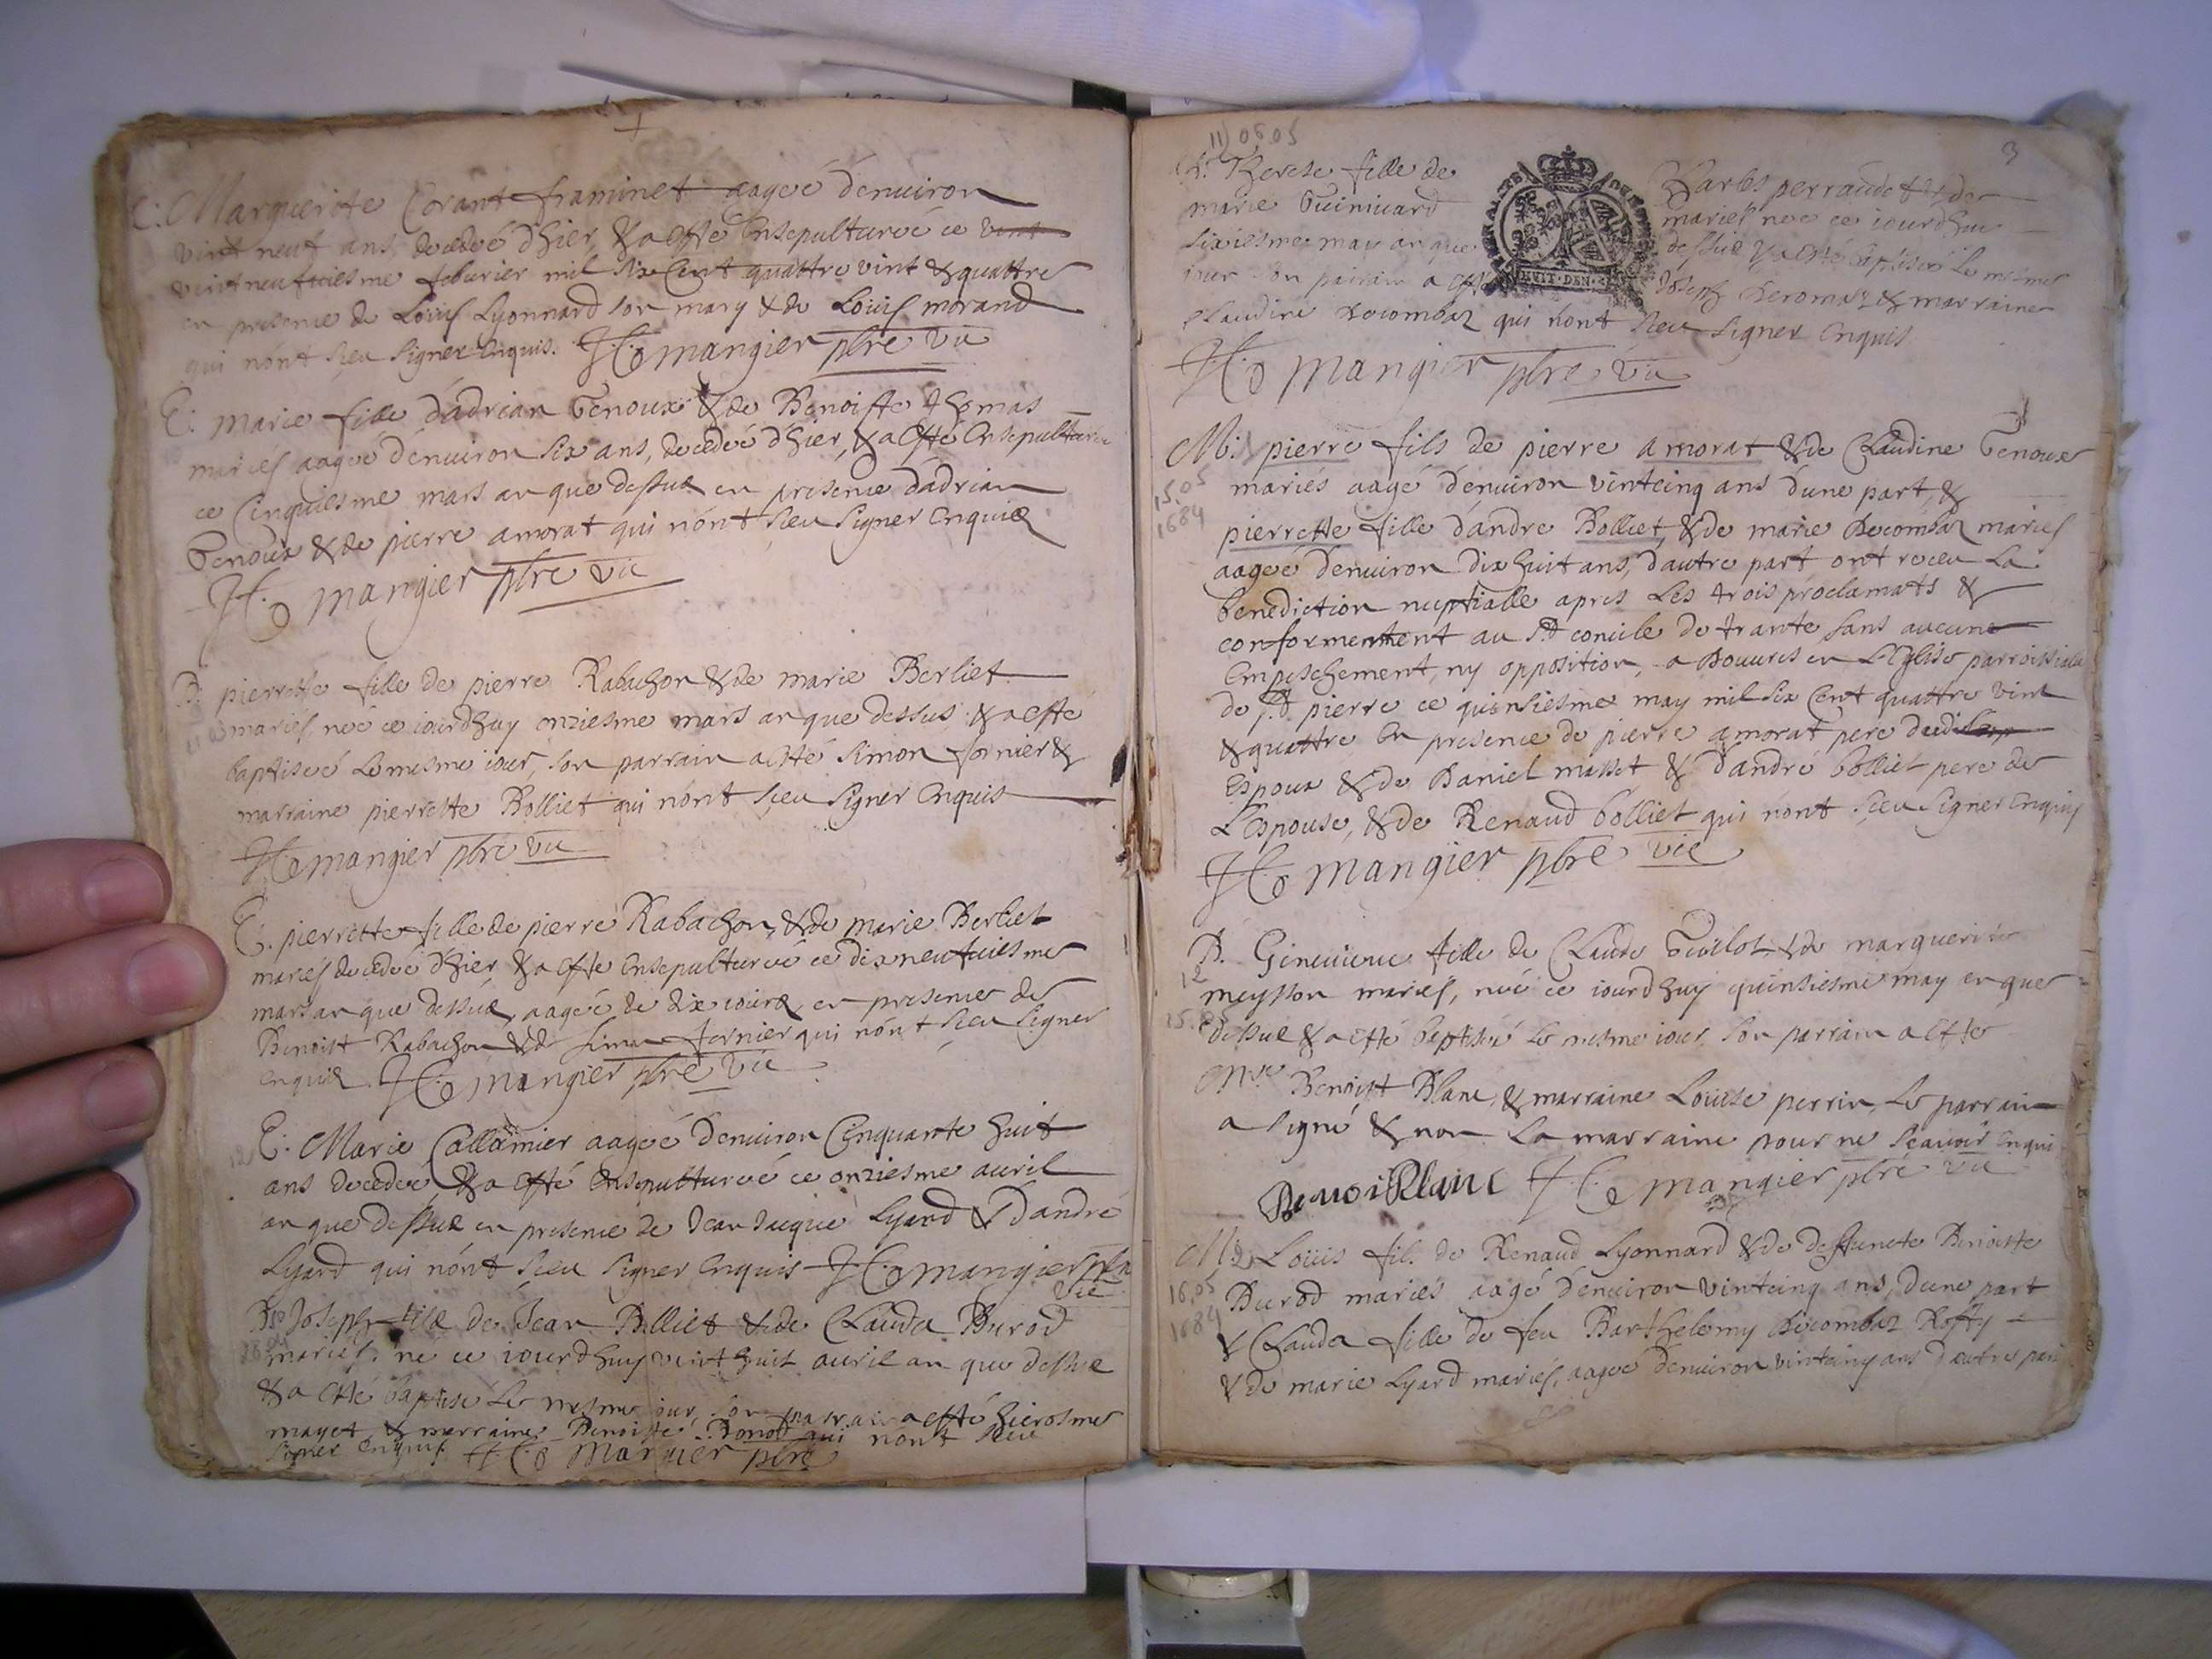 E: Marguerite Corant framinet aageé d'enuiron
vint neuf ans, decedeé d'hier, & a esté Ensepultureé ce vint
vintneufuiesme feburier mil six Cent quattre vint & quattre
en presence de Louis Lyonnard son mary & de Louis morand
qui n'ont sceu signer Enquis. mangier pbre vic
E: marie fille d'adrian Genoux & de Benoiste Thomas
mariés aageé d'enuiron six ans, decedeé d'hier, & a esté Ensepultureé
ce Cinquiesme mars an que dessus en presence d'adrian
Genoux & de pierre amorat qui n'ont sceu signer Enquis
mangier pbre vic
B: pierrette fille de pierre Rabachon & de marie Berliet
mariés, neé ce iourdhuy onziesme mars an que dessus & a esté
baptiseé le mesme iour, son parrain a esté simon fornier &
marraine pierrette Bolliet qui n'ont sceu signer Enquis
mangier pbre vic
E. pierrette fille de pierre Rabachon, & de marie Berliet
mariés decedeé d'hier & a esté Ensepultureé ce dixneufuiesme
mars an que dessus, aageé de dix iours en presence de
Benoist Rabachon & de simon fornier qui n'ont sceu signer
enquis. mangier pbre vic
E: Marie Callamier aageé d'enuiron Cinquante huit
ans decedeé, & a esté Ensepultureé ce onziesme auril
an que dessus en presence de Jean Jacque Lyard & d'andré
Lyard qui n'ont sceu signer Enquis mangier pbre
vic
B. Joseph fils de Jean Bolliet & de Clauda Burod
mariés, né ce iourdhuy vint huit auril an que dessus
& a esté baptisé le mesme iour, son parrain a esté hierosme
mayet & marraine Benoiste qui n'ont sceu
signer Enquis mangier pbre
11/05.05
3
Therese fille de Charles perraud & de
marie Guinivard mariés neé ce iourdhuy
sixiesme may an que dessus & a esté baptiseé le mesme
iour son parrain a esté Joseph & marraine
HUIT DEN
Claudine Decombaz qui n'ont sceu signer Enquis
mangier pbre vic
M. pierre fils de pierre amorat & de Claudine Genoux
15.05
1684
mariés aagé d'enuiron vintcinq ans d'une part, &
pierrette fille d'andre Bolliet, & de marie Decombaz mariés
aageé d'enuiron dix huit ans, d'autre part ont receu la
benediction nuptialle apres les trois proclamats &
conformement au st concile de trante sans aucune
Empeschement, ny opposition, a Douures en L'Eglise parroissialle
de st pierre ce quinsiesme may mil six Cent quattre vint
& quattre En presence de pierre amorat pere dudit
Espoux & de Daniel masset & d'andré bolliet pere de
L'Espouse, & de Renaud bolliet qui n'ont sceu signer Enquis
mangier pbre vic
B. Geneuieue fille de Claude Guillot & de marguerite
12
15.05
meysson mariés, neé ce iourdhuy quinsiesme may an que
dessus & a esté baptiseé le mesme iour son parrain a esté
Mre Benoist Blanc, & marraine Louise perrin, Le parrain
a signé & non la marraine pour ne sçauoir Enquis
Benoi Blanc mangier pbre vic
M. Louis fils de Renaud Lyonnard & de deffuncte Benoiste
16.05
1684
Burod mariés aagé d'enuiron vintcinq ans, d'une part
& Clauda fille de feu Barthelemy Decombaz Roffy
& de marie Lyard mariés, aageé d'enuiron vintcinq ans d'autre part